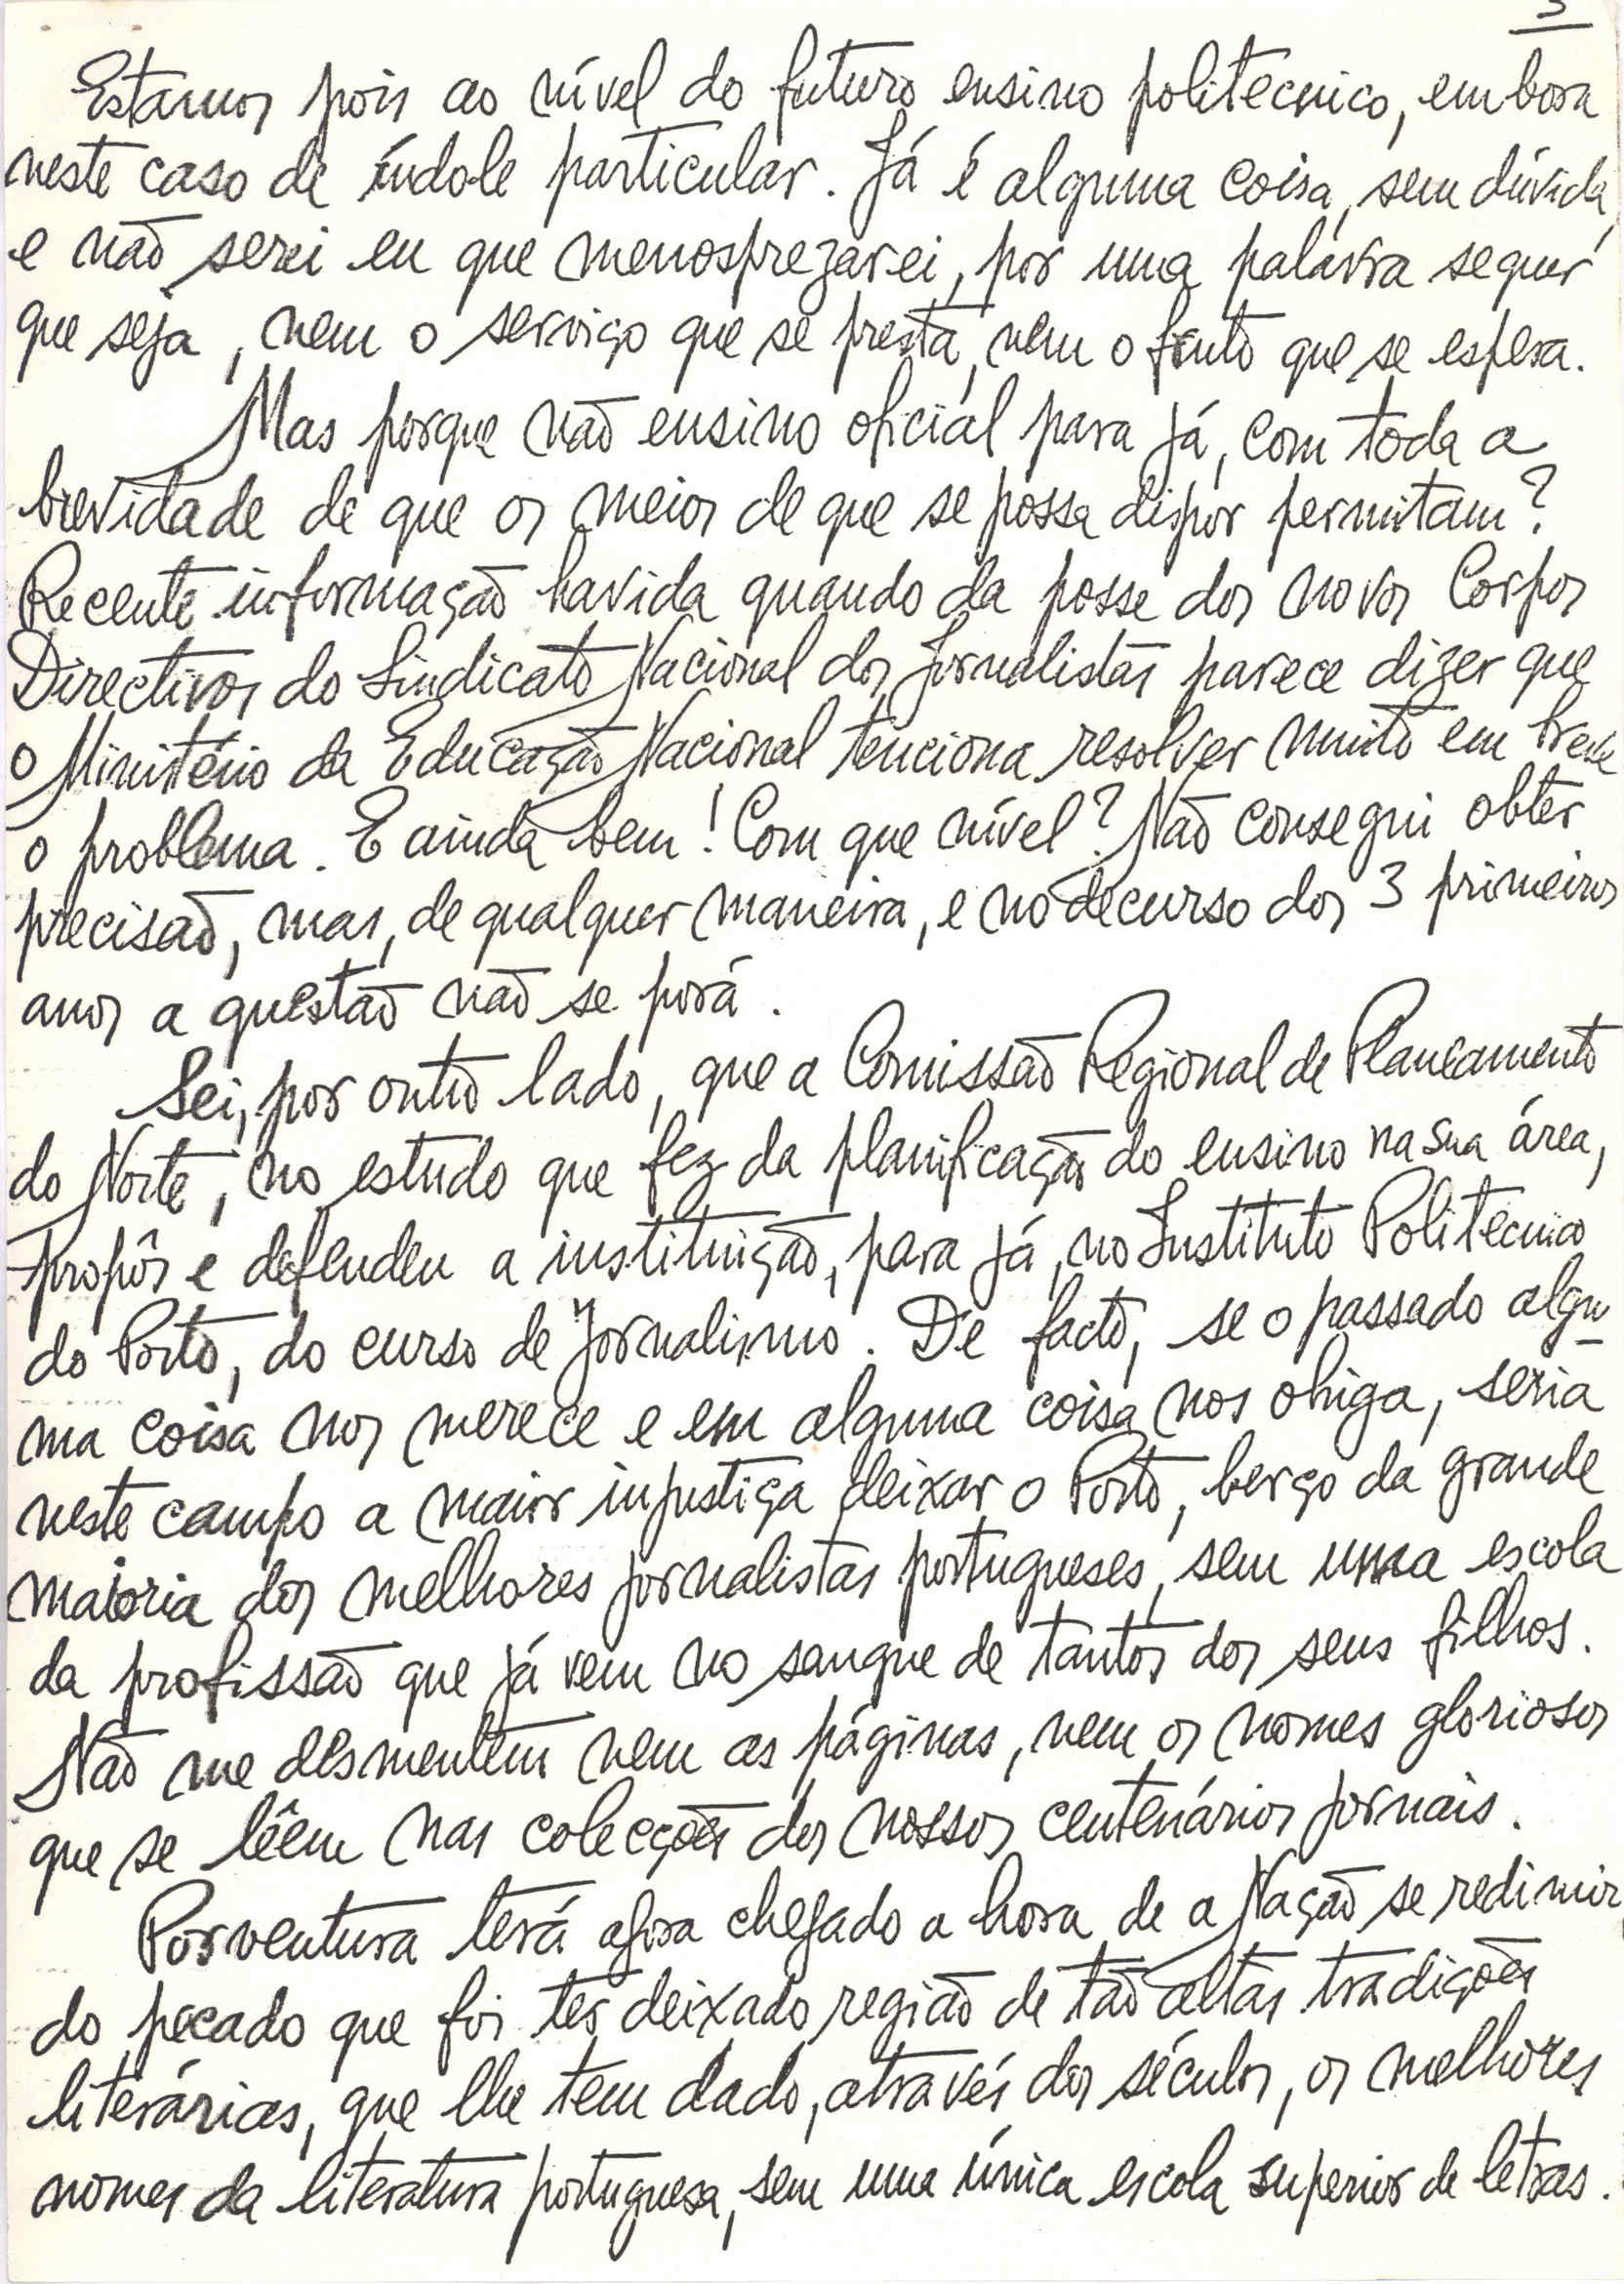 3
Estamos pois ao nível do futuro ensino politecnico, embora
neste caso de índole particular. Já é alguma coisa, sem dúvida,
e não serei eu que menosprezarei, por uma palavra sequer
que seja, nem o serviço que se presta, nem o fruto que se espera.
Mas porque não ensino oficial para já, com toda a
brevidade de que os meios de que se possa dispor permitam?
Recente informação havida quando da posse dos novos Corpos
Directivos do Sindicato Nacional dos Jornalistas parece dizer que
o Ministério da Educação Nacional tenciona resolver muito em breve
o problema. E ainda bem! Com que nível? Não consegui obter
precisão, mas, de qualquer maneira, e no decurso dos 3 primeiros
anos a questão não se porá.
Sei, por outro lado, que a Comissão Regional de Planeamento
do Norte, no estudo que fez da planificação do ensino na sua área,
propôs e defendeu a instituição, para já, no Instituto Politécnico
do Porto, do curso de Jornalismo. De facto, se o passado algu-
ma coisa nos merece e em alguma coisa nos obriga, seria
neste campo a maior injustiça deixar o Porto, berço da grande
maioria dos melhores jornalistas portugueses, sem uma escola
da profissão que já vem no sangue de tantos dos seus filhos.
Não me desmentem nem as páginas, nem os nomes gloriosos
que se lêem nas colecções dos nossos centenários jornais.
Porventura terá agora chegado a hora de a Nação se redimir
do pecado que foi ter deixado região de tão altas tradições
literárias, que lhe tem dado, através dos séculos, os melhores
nomes da literatura portuguesa, sem uma única escola superior de letras.